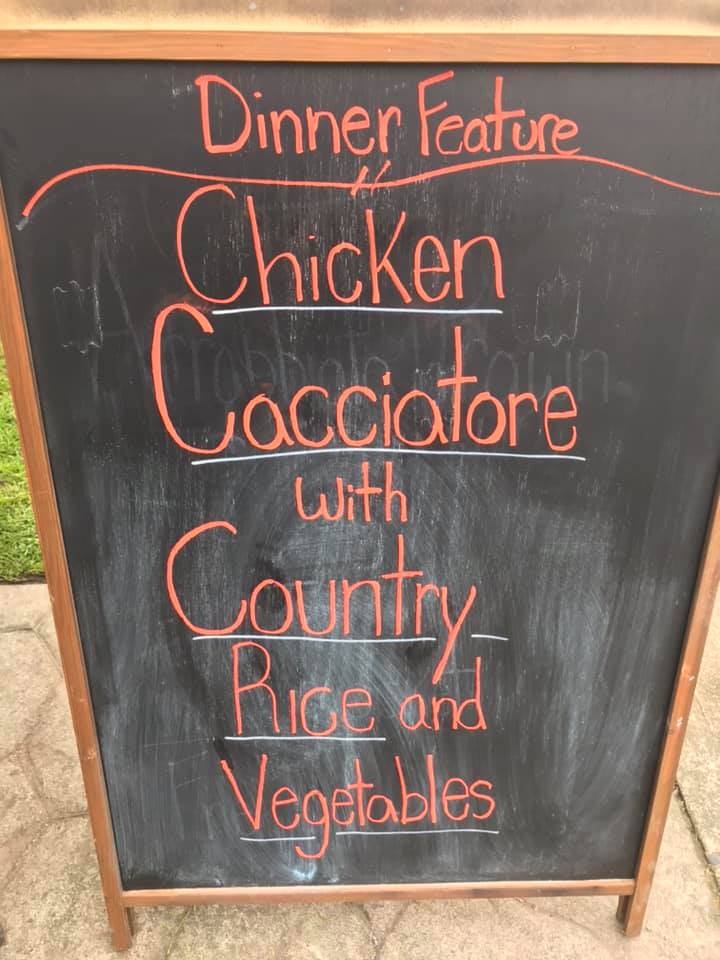 Dinner Feature
Chicken
Cacciatore
with
Country
Rice and
Vegetables